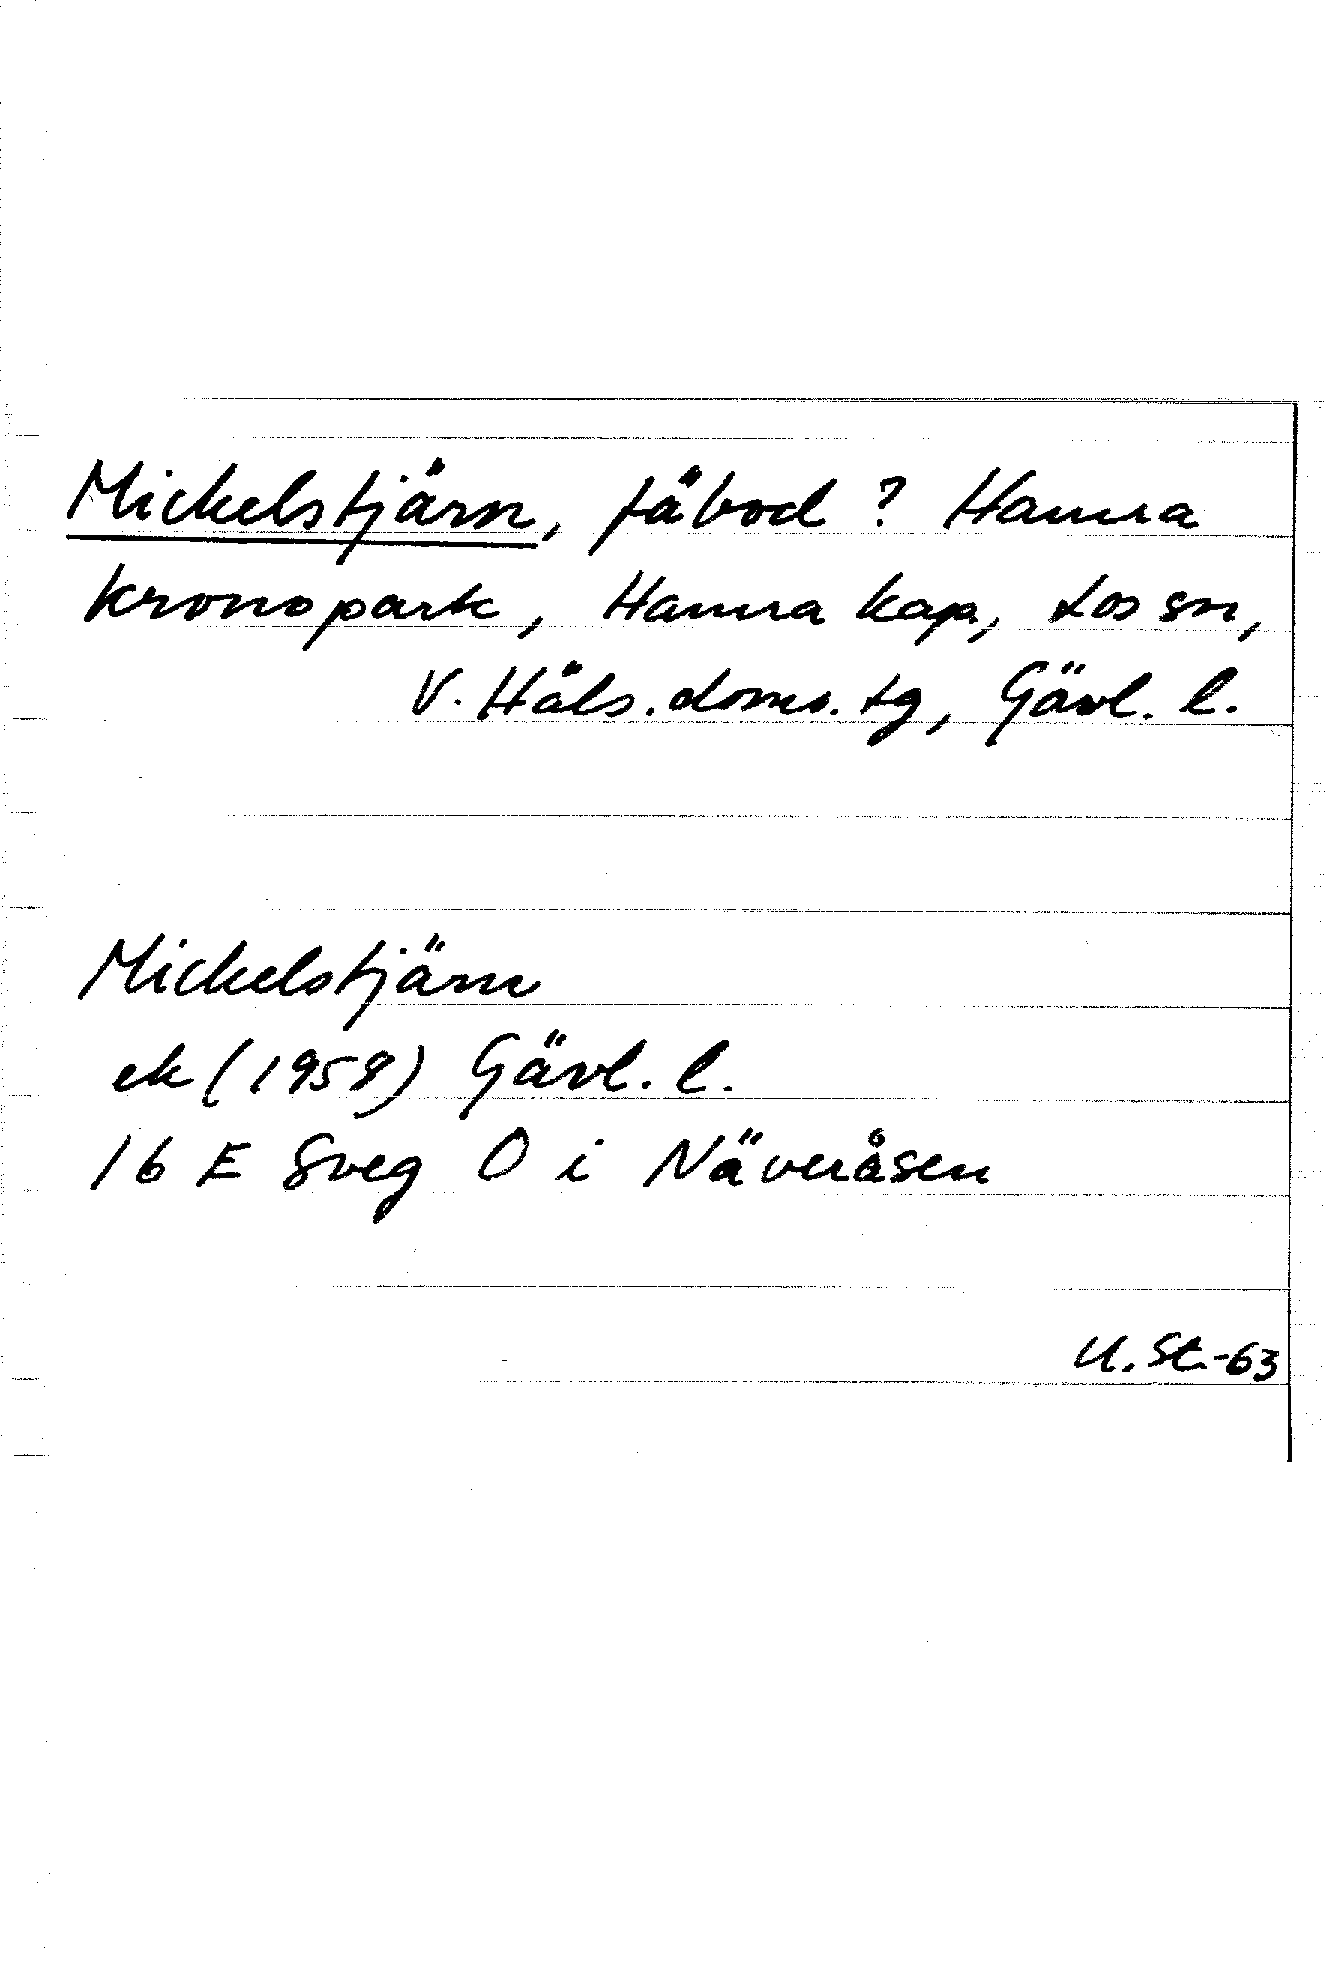 Mickelstjärn, fäbod? Hamra
kronopark, Hamra kap, Los sn,
V. Häls. doms. tg, Gävl. l.
Mickelstjärn
ek (1958) Gävl. l.
16 E Sveg O i Näveråsen
U. St. -63